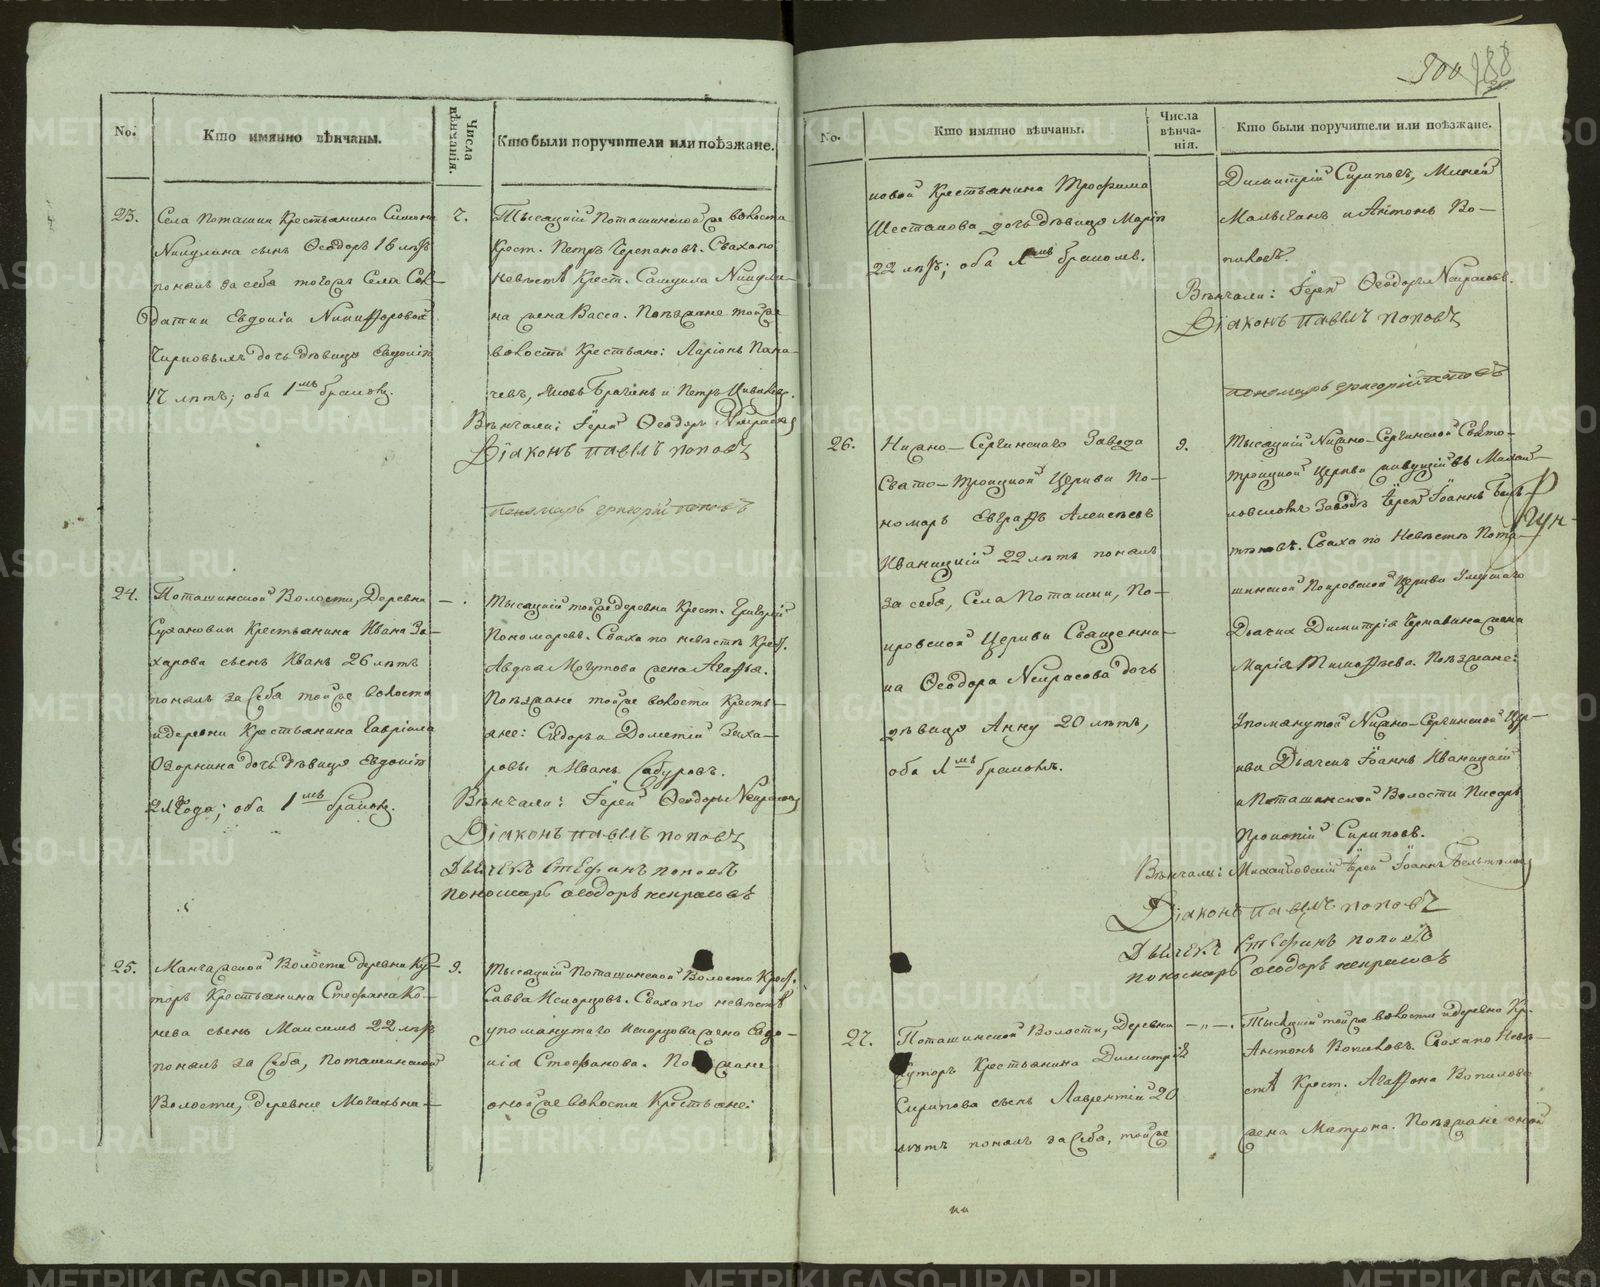 No.
Кто имянно вѣнчаны.
Числа вѣнчанія.
Кто были поручители или поѣзжане.
23.
Села Поташки Крестьянина Симона
Никулина сынъ Ѳеодоръ 16 лѣтъ
понялъ за себя тогожъ Села Сол-
датки Евдокіи Никифоровой
дочь дѣвицу Евдокію
17 лѣтъ; оба 1мъ бракомъ.
7.
Тысяцкій Поташинской же волости
Крест. Петръ Черепановъ. Сваха по
невѣстѣ Крест. Самуила Никули-
на жена Васса. Поѣзжане тойже
волости Крестьяне: Ларіонъ Пана-
чевъ, Яковъ и Петръ
Вѣнчали: Іерей Ѳеодоръ Некрасовъ
Діаконъ Павелъ Поповъ
пономарь Григорій Поповъ
24.
Поташинской Волости, Деревни
Сухановки Крестьянина Ивана За-
харова сынъ Иванъ 26 лѣтъ
понялъ за себя тойже волости
и деревни Крестьянина Гавріила
Озорнина дочь дѣвицу Евдокію
21 года; оба 1мъ бракомъ.
Тысяцкій тойже деревни Крест. Григорій
Пономаревъ. Сваха по невѣстѣ Крест.
Авдѣя жена Агафья.
Поѣзжане тойже волости Кресть-
яне: Сидоръ и Дометій Заха-
ровы и Иванъ Сабуровъ.
Вѣнчали: Іерей Ѳеодоръ Некрасовъ
Діаконъ Павелъ Поповъ
Дьячекъ Стефанъ Поповъ
пономарь Ѳеодоръ Некрасовъ
25.
Манчажской Волости деревни Ку-
торъ Крестьянина Стефана Ко-
нева сынъ Максимъ 22 лѣтъ
понялъ за себя, Поташинской
Волости, деревни Могильни-
9.
Тысяцкій Поташинской Волости Крест.
Савва Искорцовъ. Сваха по невѣстѣ
упомянутаго Искорцова жена Евдо-
кія Стефанова. Поѣзжане
оной же волости Крестьяне:
300 288
No.
Кто имянно вѣнчаны.
Числа вѣнча-нія.
Кто были поручители или поѣзжане.
ковой Крестьянина Трофима
Шестакова дочь дѣвицу Марію
22 лѣтъ; оба 1мъ бракомъ.
Димитрій Скриповъ, Минѣй
Малыганъ и Антонъ Во-
пиловъ.
Вѣнчали: Іерей Ѳеодоръ Некрасовъ.
Діаконъ Павелъ Поповъ
пономарь Григорій Поповъ
26.
Нижно-Сергинскаго Завода
Свято-Троицкой Церкви По-
номарь Евграфъ Алексѣевъ
Иваницкій 22 лѣтъ понялъ
за себя, Села Поташки, По-
кровской Церкви Священни-
ка Ѳеодора Некрасова дочь
дѣвицу Анну 20 лѣтъ,
оба 1мъ бракомъ.
9.
Тысяцкій Нижно-Сергинской Свято-
Троицкой Церкви въ Михай-
ловскомъ Заводѣ Іерей Іоаннъ
Сваха по Невѣстѣ Пота-
шинской Покровской Церкви
Дьячка Димитрія жена
Марія Тимофѣева. Поѣзжане:
Упомянутой Нижно-Сергинской Цер-
кви Дьячекъ Іоаннъ Иваницкій
и Поташинской Волости Писарь
Прокопій Скриповъ.
Вѣнчали: Михайловскій Іерей Іоаннъ
Діаконъ Павелъ Поповъ
Дьячекъ Стефанъ Поповъ
пономарь Ѳеодоръ Некрасовъ
27.
Поташинской Волости, Деревни
Куторъ Крестьянина Димитрія
Скрипова сынъ Лаврентій 20
лѣтъ понялъ за себя, тойже
Тысяцкій тойже волости и деревни Кр.
Антонъ Вопиловъ. Сваха по Невѣ-
стѣ Крест. Агафона Вопилова
жена Матрона. Поѣзжане оной